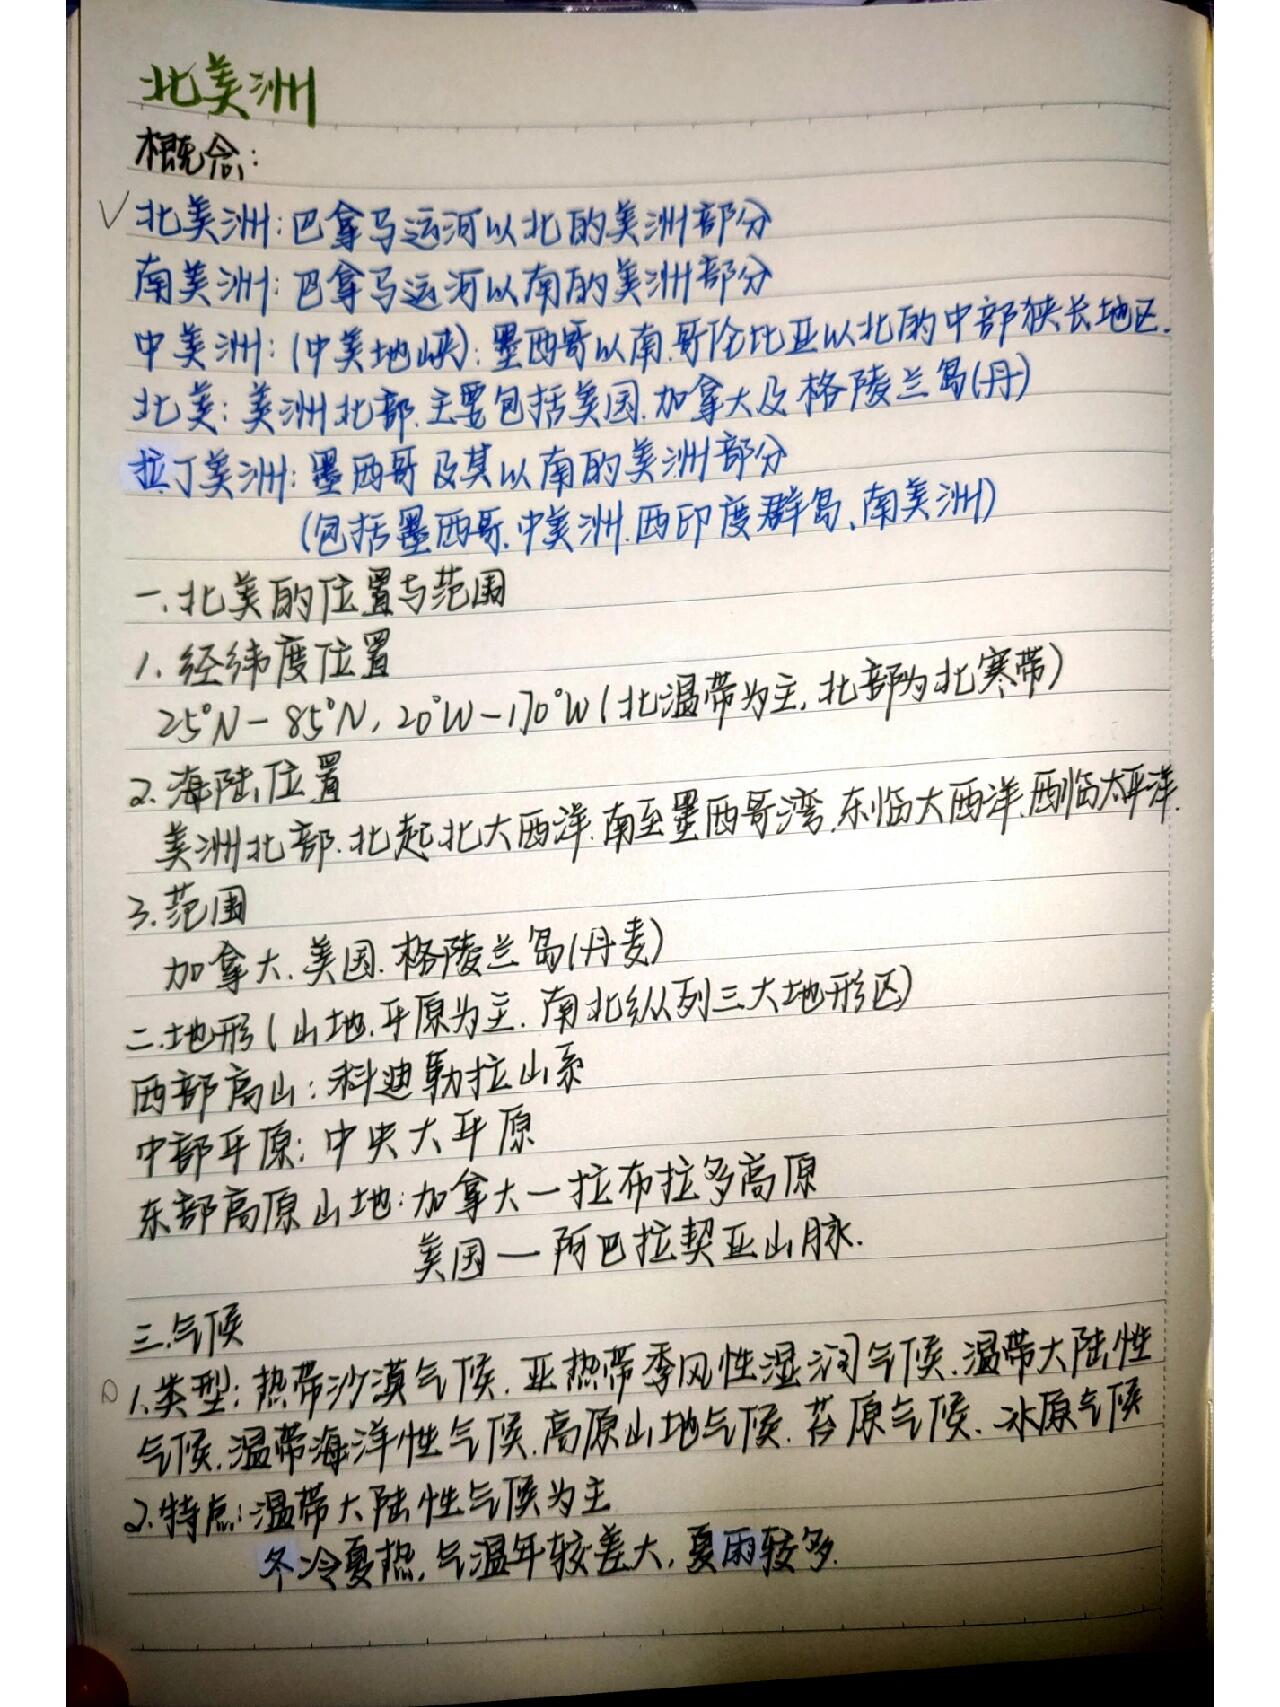 北美洲
概念:
√北美洲:巴拿马运河以北的美洲部分
南美洲:巴拿马运河以南的美洲部分
中美洲:(中美地峡):墨西哥以南、哥伦比亚以北的中部狭长地区.
北美:美洲北部.主要包括美国.加拿大及格陵兰岛(丹)
拉丁美洲:墨西哥及其以南的美洲部分
(包括墨西哥、中美洲.西印度群岛、南美洲)
一.北美的位置与范围
1.经纬度位置
25°N-85°N,20°W-170°W(北温带为主,北部为北寒带)
2.海陆位置
美洲北部.北起北大西洋.南至墨西哥湾.东临大西洋.西临太平洋.
3.范围
加拿大.美国.格陵兰岛(丹麦)
二.地形(山地.平原为主.南北纵列三大地形区)
西部高山:科迪勒拉山系
中部平原:中央大平原
东部高原山地:加拿大—拉布拉多高原
美国—阿巴拉契亚山脉.
三.气候
1.类型:热带沙漠气候.亚热带季风性湿润气候.温带大陆性
气候.温带海洋性气候.高原山地气候.苔原气候.冰原气候
2.特点:温带大陆性气候为主
冬冷夏热,气温年较差大,夏雨较多.